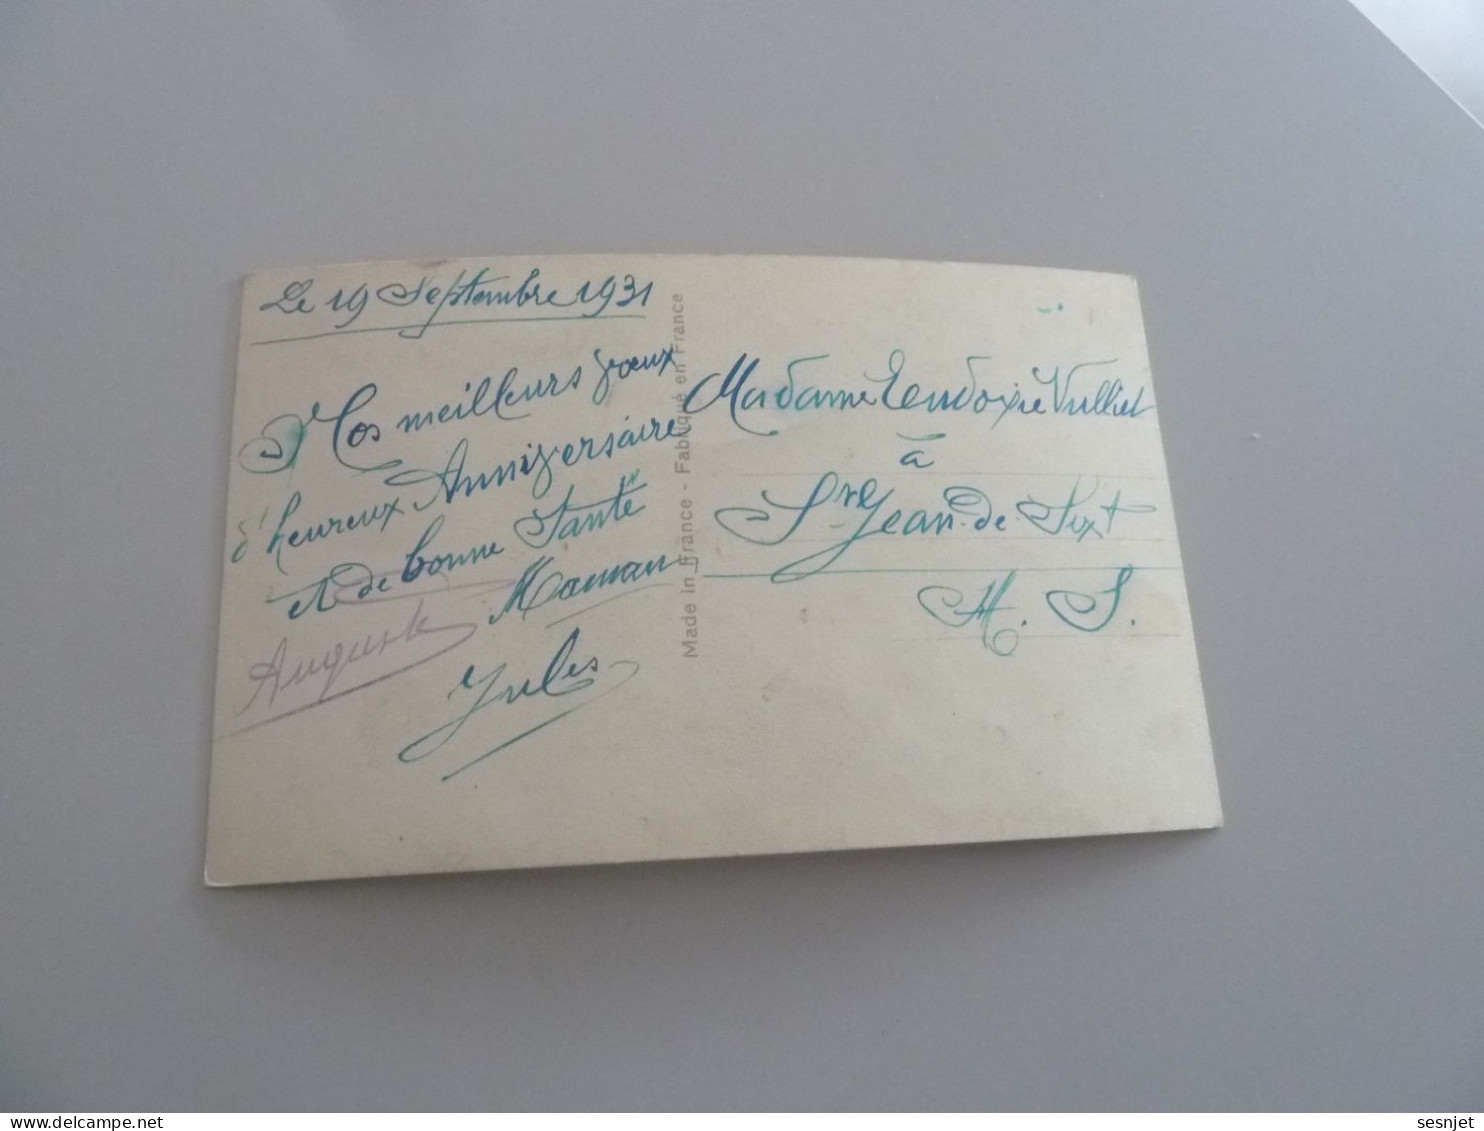 Le 19 Septembre 1931
Nos meilleurs voeux
d'heureux Anniversaire
et de bonne Santé
Maman
Auguste
Jules
Made in France - Fabriqué en France
Madame Eudoxie Vulliet
à
St Jean-de-Sixt
H. S.
sesnjet